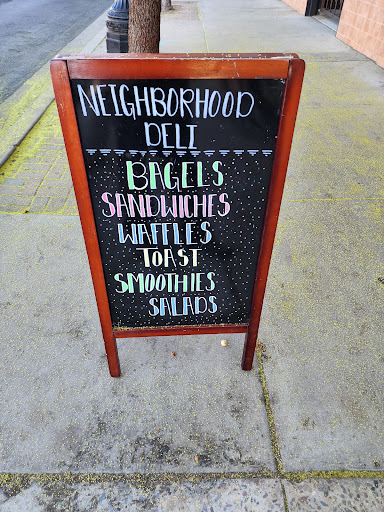 NEIGHBORHOOD
DELI
BAGELS
SANDWICHES
WAFFLES
TOAST
SMOOTHIES
SALADS